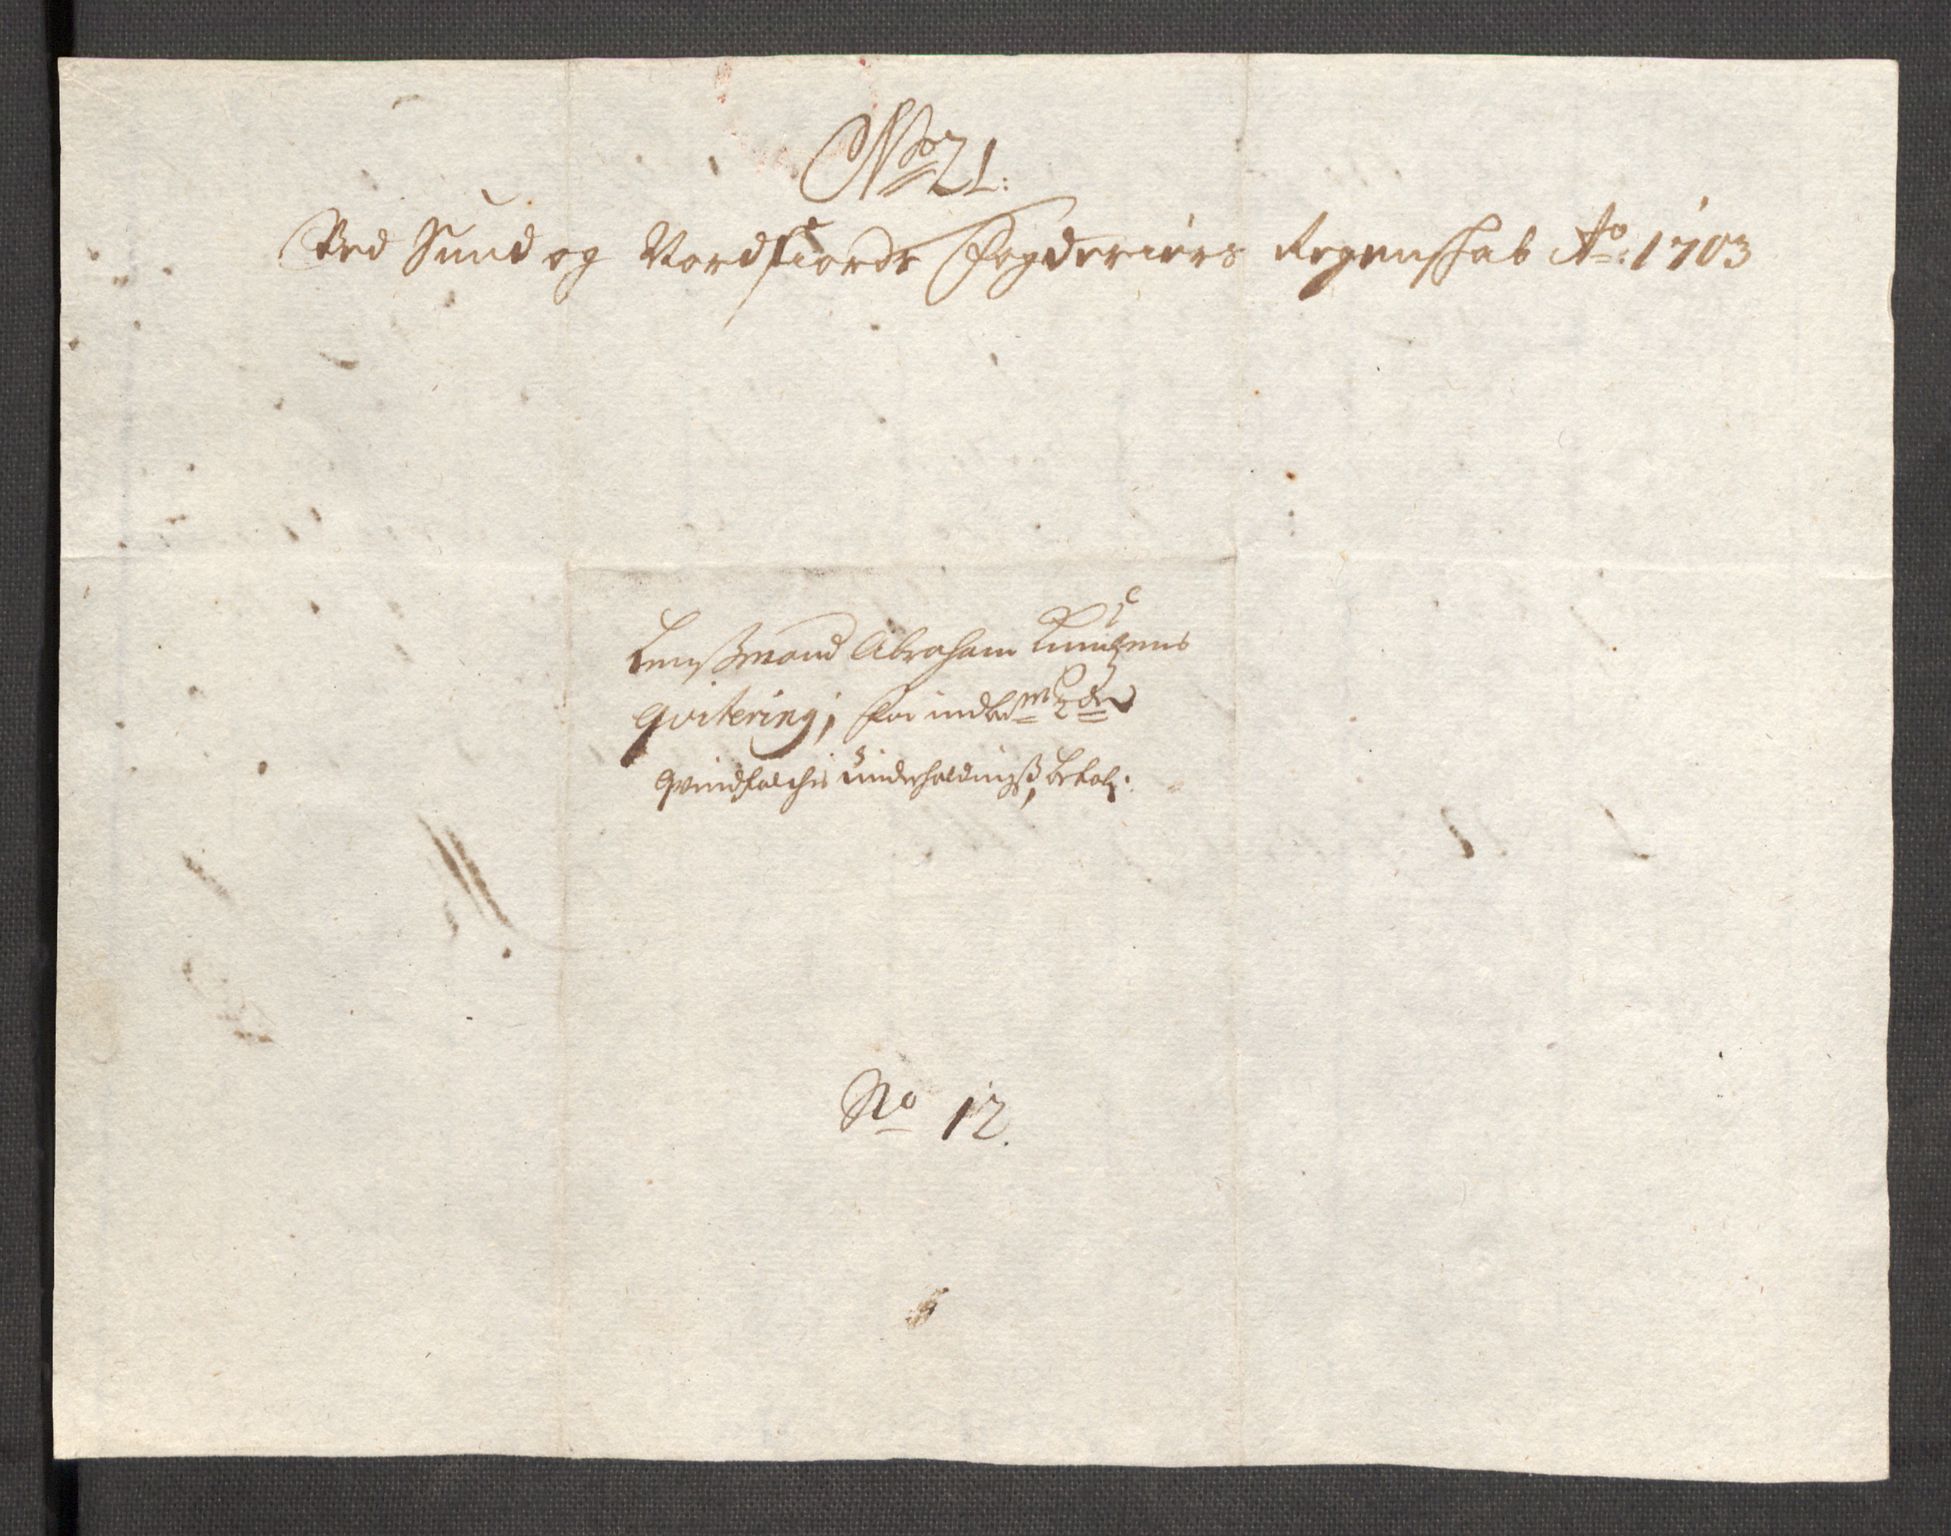 No 21:
Ved Sund og Nordfiords Fogderiers Regenskab Ao: 1703
Lenßmand Abraham Knutzens
qvitering, for indbm 2de
qvindfolchis underholdningß betalg:
No 12.